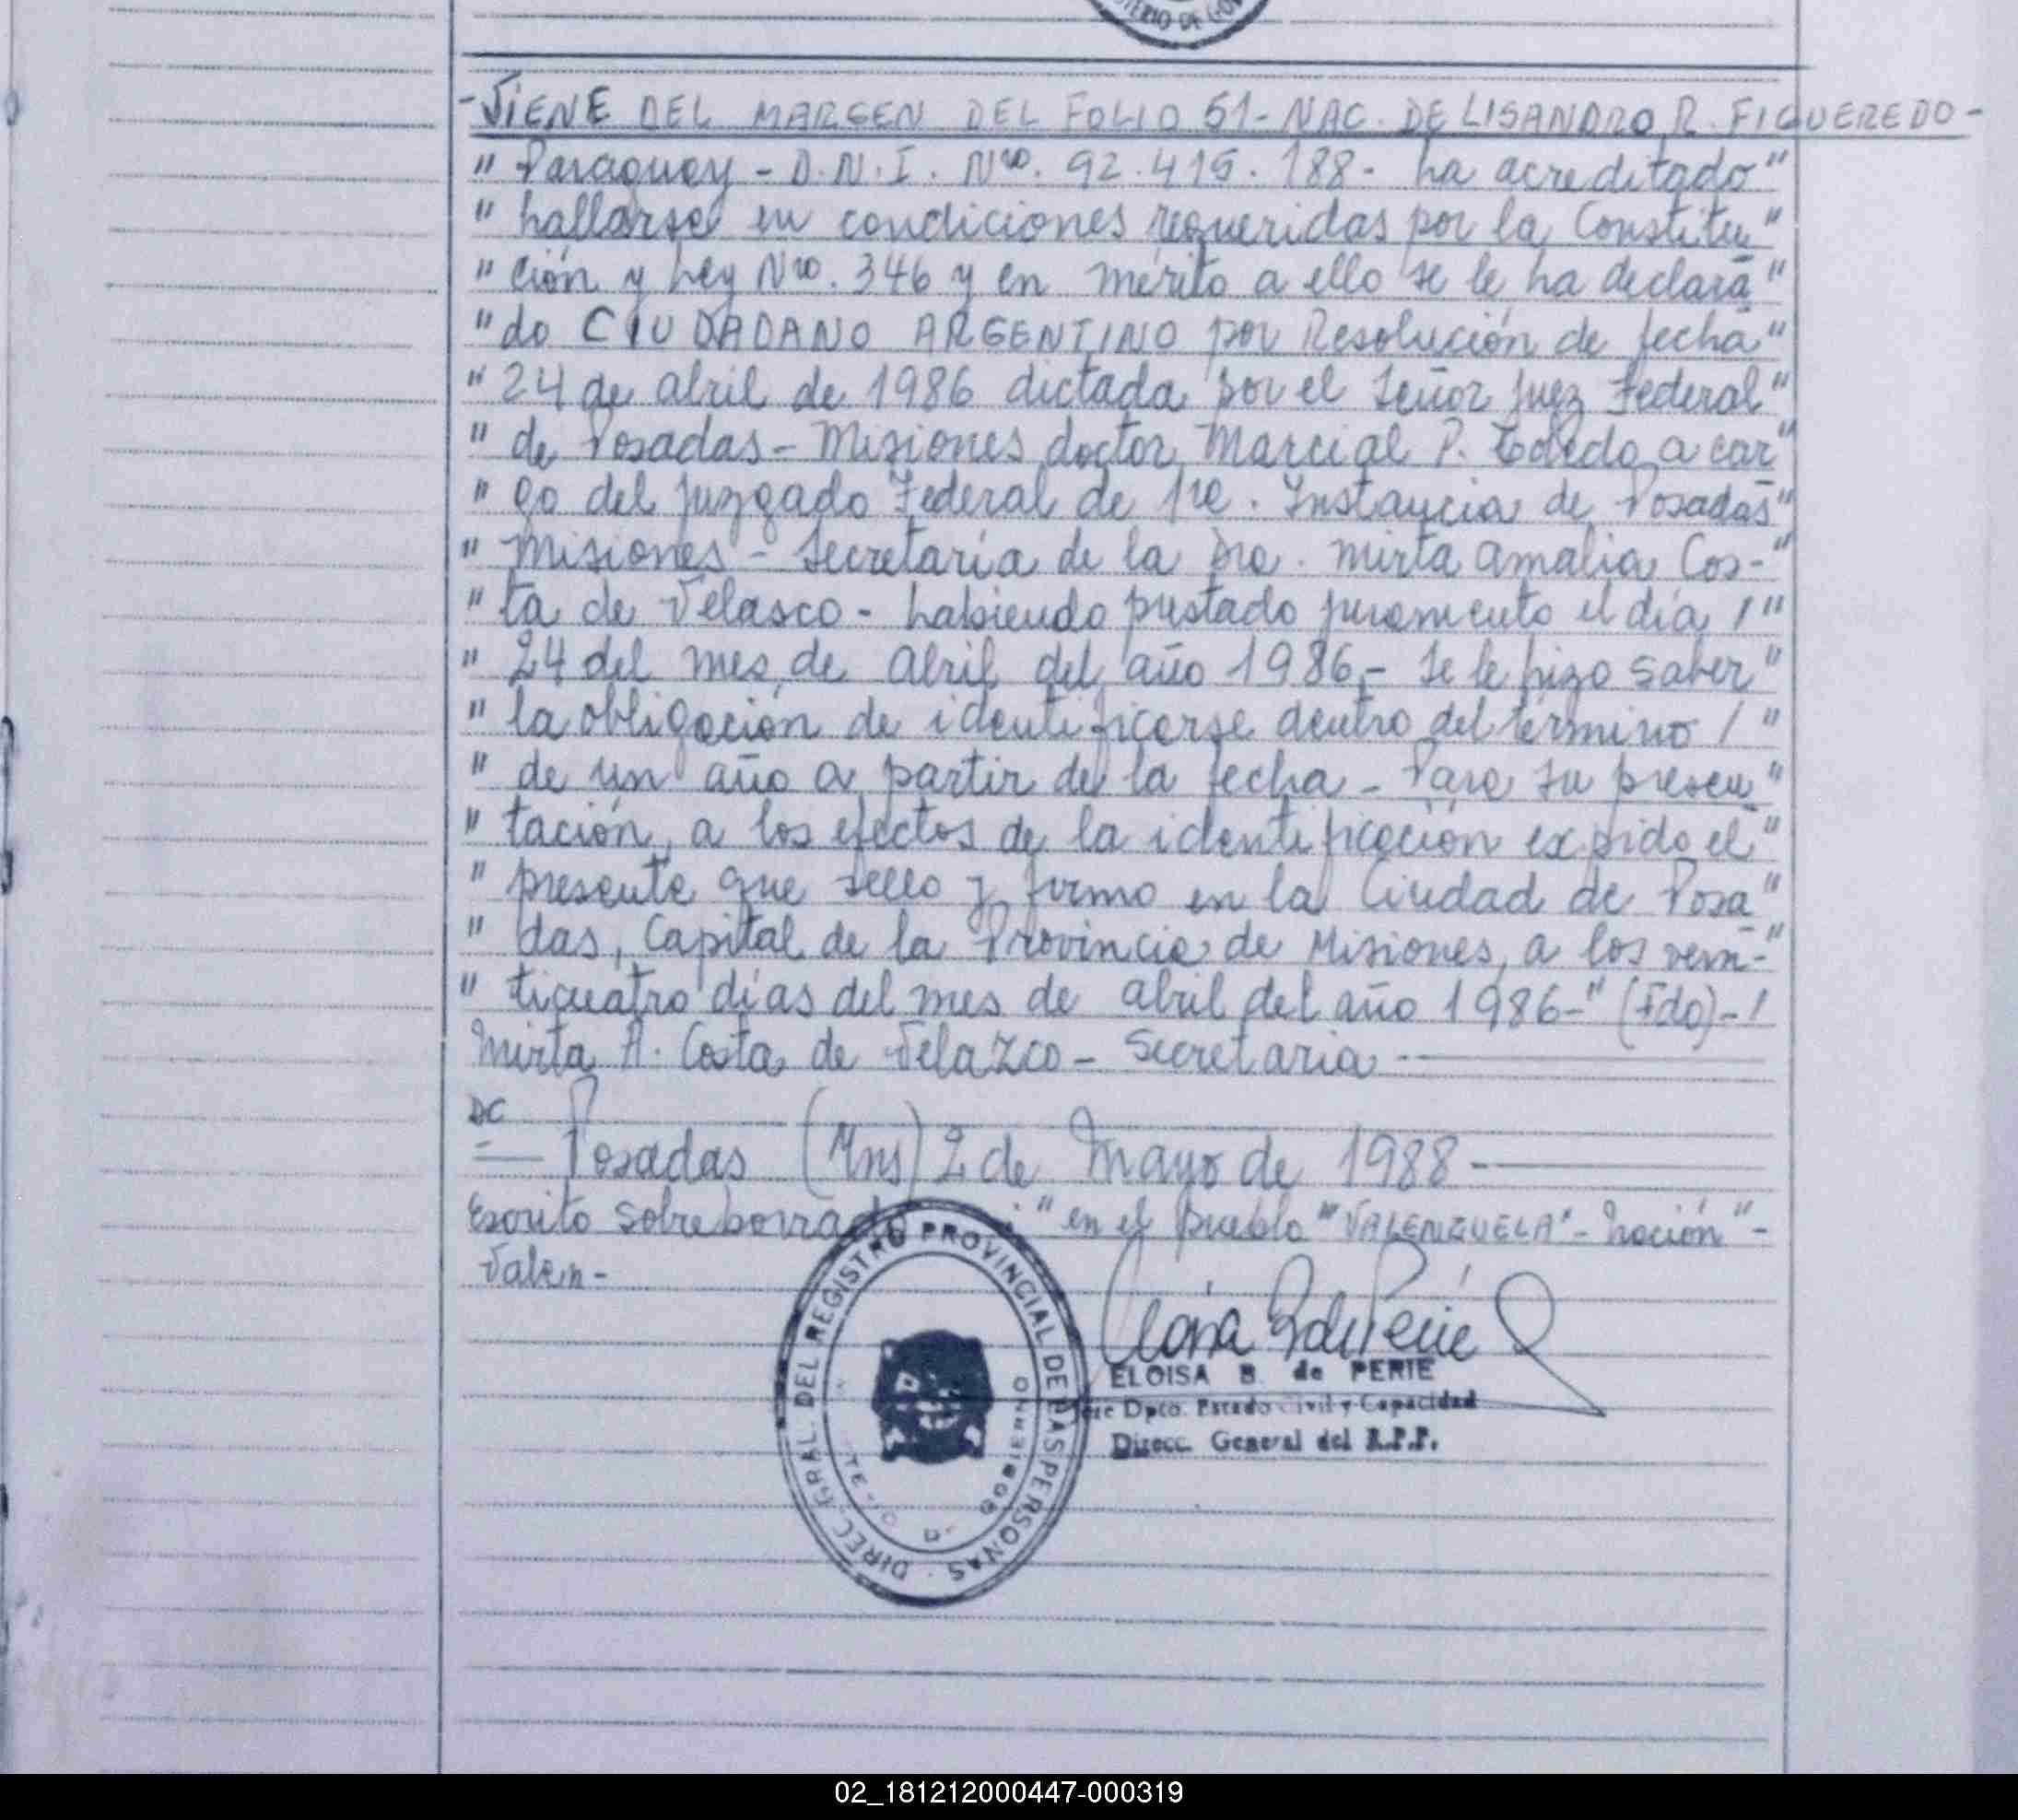 TERIO DE GO
-VIENE DEL MARGEN DEL FOLIO 61- NAC. DE LISANDRO R. FIGUEREDO-
" Paraguay - D.N.I. Nro. 92.415.188- ha acreditado"
" hallarse en condiciones requeridas por la Constitu"
" ción y Ley Nro. 346 y en mérito a ello se le ha declara"
" do CIUDADANO ARGENTINO por Resolución de fecha"
" 24 de abril de 1986 dictada por el Señor Juez Federal"
" de Posadas - Misiones doctor Marcial P. Toledo a car"
" go del Juzgado Federal de 1ra. Instancia de Posadas"
" Misiones - Secretaría de la Dra. Mirta Amalia Cos-"
" ta de Velasco - habiendo prestado juramento el día /"
" 24 del mes de Abril del año 1986.- Se le hizo saber"
" la obligación de identificarse dentro del término /"
" de un año a partir de la fecha - Para su presen"
" tación, a los efectos de la identificación expido el"
" presente que sello y firmo en la Ciudad de Posa"
" das, Capital de la Provincia de Misiones, a los vein-"
" ticuatro días del mes de abril del año 1986-" (Fdo)-/
Mirta A. Costa de Velazco - Secretaria
DC
Posadas (Mns) 2 de Mayo de 1988
Escrito sobre borrado: "en el pueblo "VALENZUELA"- nación"-
Valen-
DIREC. GRAL. DEL REGISTRO PROVINCIAL DE LAS PERSONAS
GOBIERNO
ELOISA B. de PERIE
Jefe Dpto. Estado Civil y Capacidad
Direcc. General del R.P.P.
02_181212000447-000319